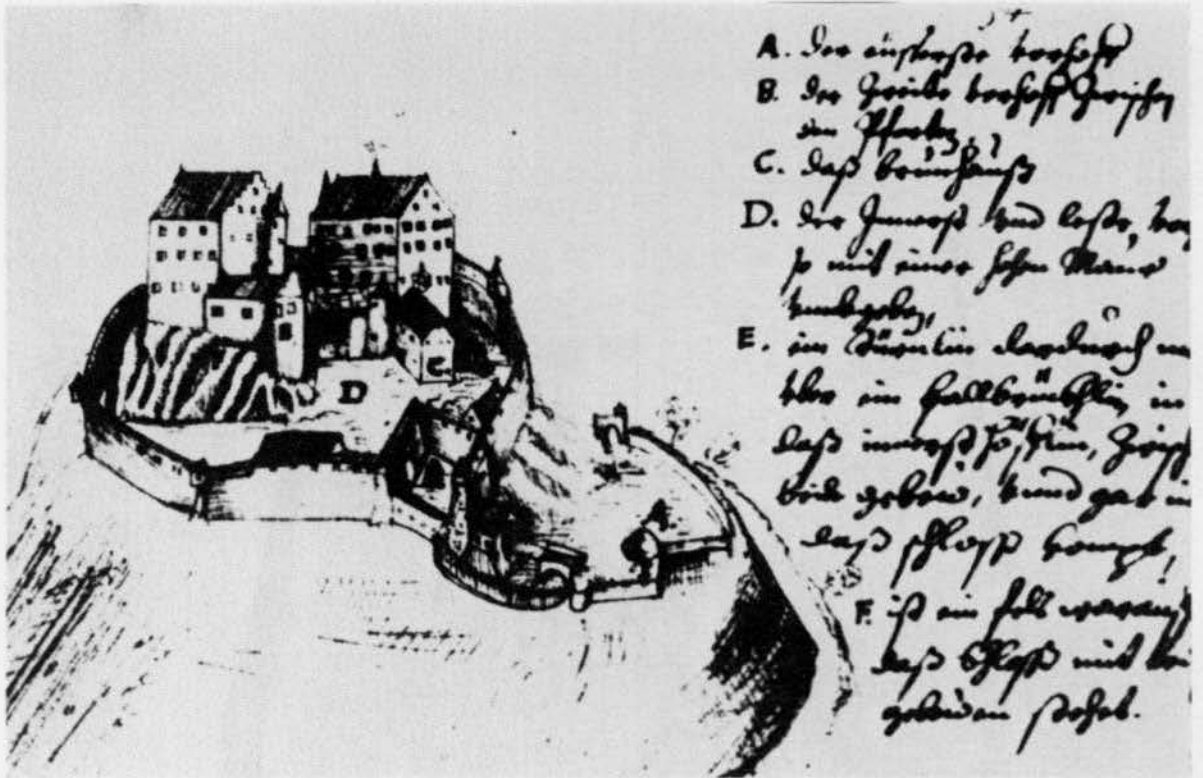 A. der eüsserste vorhoff
B. der Zweite vorhoff Zwischen
den Pforten,
C. daß brunhauß
D. der Innerst vnd leste, vor
so mit einer hohen Maur
vmbgeben,
E. ein Türnlin dardurch m
vber ein fallbrückhlin in
daß innerst höfflin, Zwisch
beide gebew, vnnd gar in
daß schloß kompt,
F. ist ein fels warauf
daß Schloß mit
gebeüen stehet.
C
D